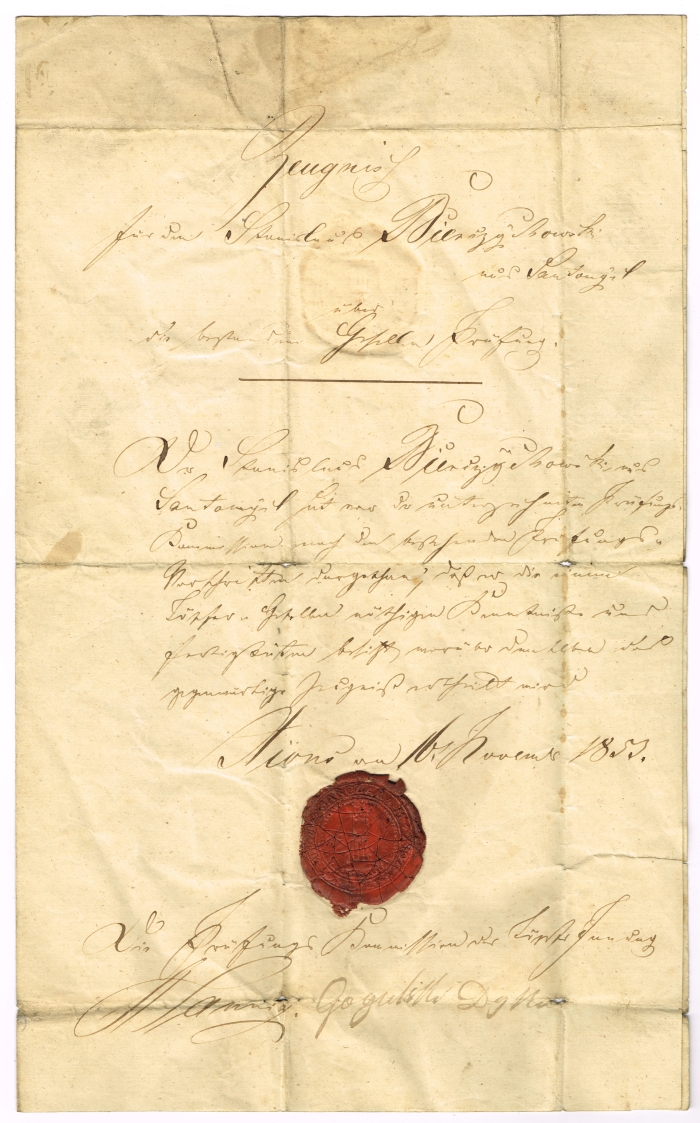 Zeugniß
für den Stanislaus Bieruzychowski
aus Santomyśl
über
die bestandene Gesellen Prüfung.
Der Stanislaus Bieruzychowski, aus
Santomyśl hat vor der unterzeichneten Prüfungs-
Kommission nach den bestehenden Prüfungs-
Vorschriften dargethan, daß er die einem
Töpfer-Gesellen nöthigen Kenntniße und
Fertigkeiten besitzt, worüber demselben das
gegenwärtige Zeugniß ertheilt wird
den 16t November 1853.
Die Prüfungs Kommission der Töpfer Innung
Gogulski